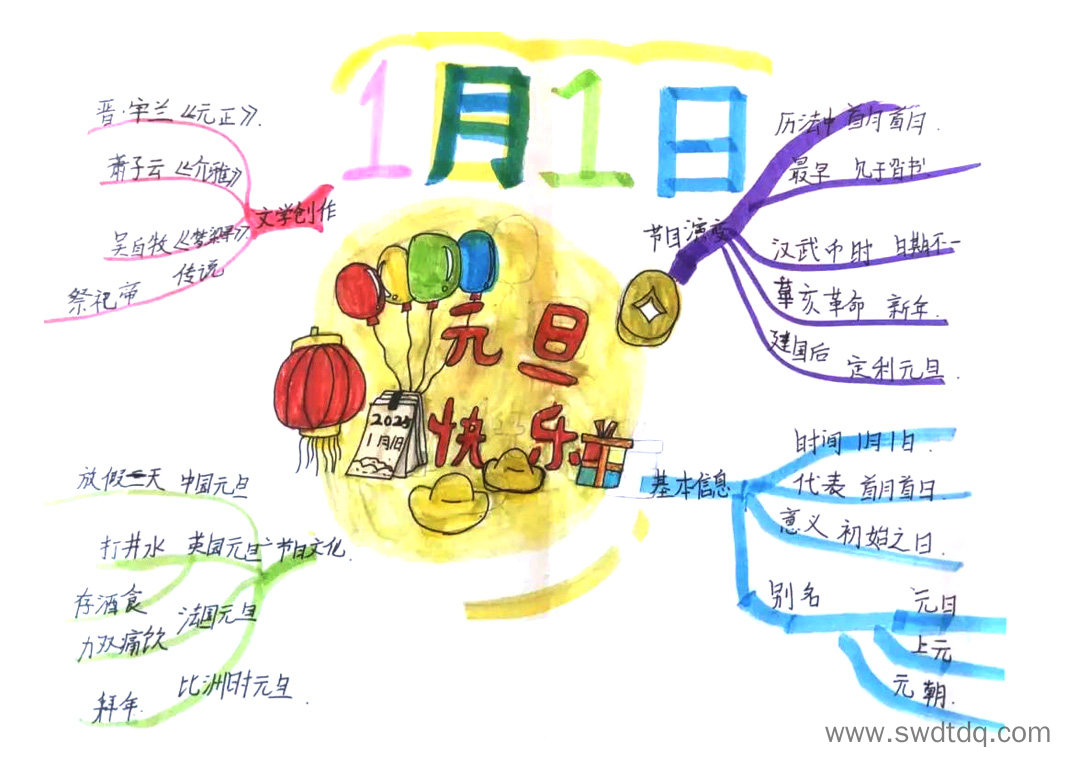 1月1日
元旦
快乐
2025
1月1日
文学创作
晋·辛兰《元正》.
萧子云《介雅》
吴自牧《梦粱录》
传说
祭祀帝
节日演变
历法中 首月首日.
最早 见于晋书
汉武帝时 日期不一
辛亥革命 新年.
建国后 定利元旦.
基本信息
时间 1月1日.
代表 首月首日.
意义 初始之日.
别名
元日
上元
元朝.
节日文化.
中国元旦
放假一天
英国元旦
打井水
法国元旦
存酒食
痛饮
比洲时元旦.
拜年.
www.swdtdq.com